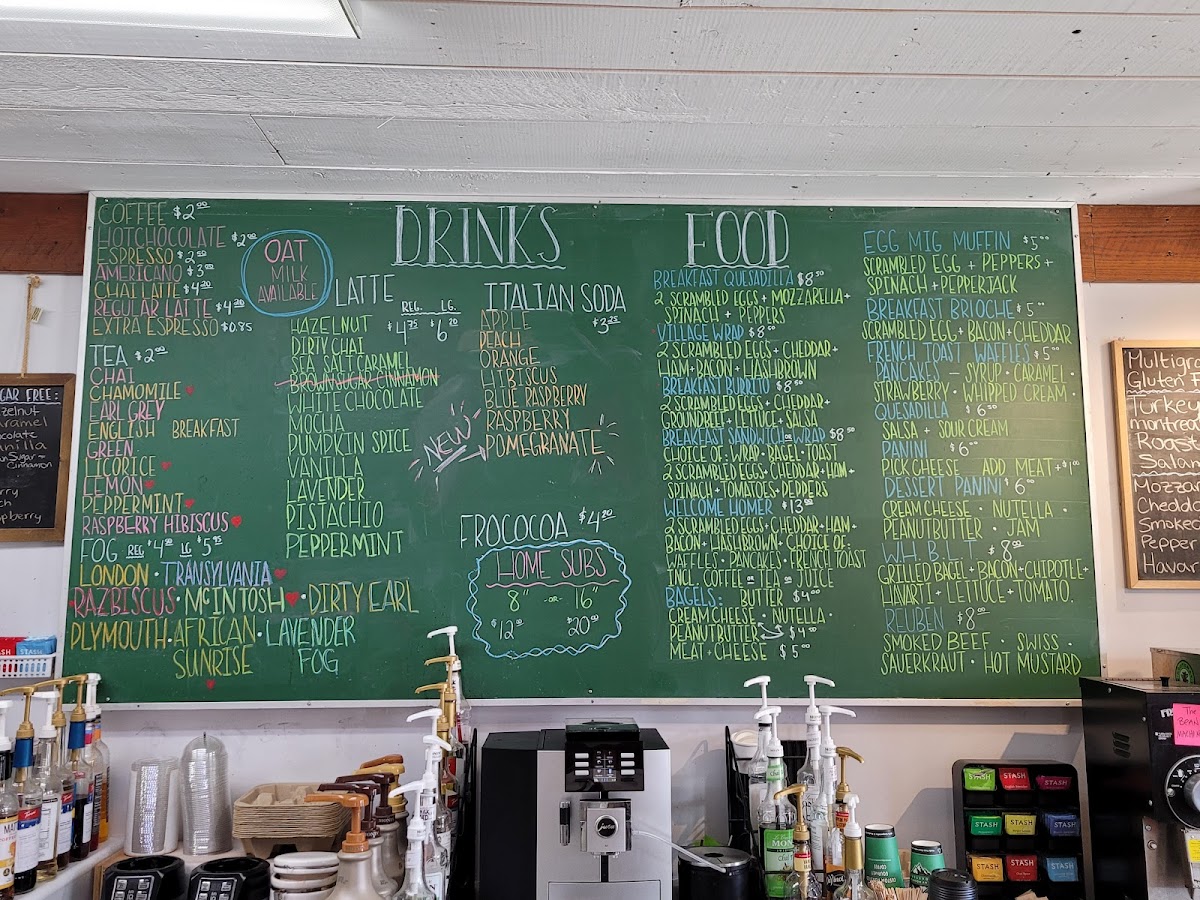 COFFEE $2.00
HOTCHOCOLATE $2.00
ESPRESSO $2.50
AMERICANO $3.00
CHAI LATTE $4.20
REGULAR LATTE $4.20
EXTRA ESPRESSO $0.85
OAT
MILK
AVAILABLE
TEA $2.00
CHAI
CHAMOMILE
EARL GREY
ENGLISH BREAKFAST
GREEN
LICORICE
LEMON
PEPPERMINT
RASPBERRY HIBISCUS
FOG REG $4.20 LG $5.95
LONDON · TRANSYLVANIA
RAZBISCUS · MCINTOSH · DIRTY EARL
PLYMOUTH · AFRICAN · LAVENDER
SUNRISE FOG
DRINKS
LATTE
REG. LG.
$4.75 $6.20
HAZELNUT
DIRTY CHAI
SEA SALT CARAMEL
BROWN SUGAR CINNAMON
WHITE CHOCOLATE
MOCHA
PUMPKIN SPICE
VANILLA
LAVENDER
PISTACHIO
PEPPERMINT
ITALIAN SODA
$2.25
APPLE
PEACH
ORANGE
HIBISCUS
BLUE RASPBERRY
RASPBERRY
POMEGRANATE
NEW
FROCOCOA $4.20
HOME SUBS
8" -OR- 16"
$12.00 $20.00
FOOD
BREAKFAST QUESADILLA $8.50
2 SCRAMBLED EGGS + MOZZARELLA +
SPINACH + PEPPERS
VILLAGE WRAP $8.50
2 SCRAMBLED EGGS + CHEDDAR +
HAM + BACON + HASHBROWN
BREAKFAST BURRITO $8.50
2 SCRAMBLED EGGS + CHEDDAR +
GROUNDBEEF + LETTUCE + SALSA
BREAKFAST SANDWICH OR WRAP $8.50
CHOICE OF: WRAP · BAGEL · TOAST
2 SCRAMBLED EGGS + CHEDDAR + HAM +
SPINACH + TOMATOES + PEPPERS
WELCOME HOMER $13.50
2 SCRAMBLED EGGS + CHEDDAR + HAM +
BACON + HASHBROWN + CHOICE OF:
WAFFLES · PANCAKES · FRENCH TOAST
INCL. COFFEE OR TEA OR JUICE
BAGELS: BUTTER $4.00
CREAM CHEESE · NUTELLA ·
PEANUTBUTTER $4.50
MEAT + CHEESE $5.00
EGG MIG MUFFIN $5.00
SCRAMBLED EGG + PEPPERS +
SPINACH + PEPPERJACK
BREAKFAST BRIOCHE $5.00
SCRAMBLED EGG + BACON + CHEDDAR
FRENCH TOAST WAFFLES $5.00
PANCAKES — SYRUP · CARAMEL ·
STRAWBERRY · WHIPPED CREAM ·
QUESADILLA $6.50
SALSA + SOUR CREAM
PANINI $6.00
PICK CHEESE ADD MEAT + $1.00
DESSERT PANINI $6.00
CREAM CHEESE · NUTELLA ·
PEANUTBUTTER · JAM
W.H.B.L.T $8.00
GRILLED BAGEL + BACON + CHIPOTLE +
HAVARTI + LETTUCE + TOMATO.
REUBEN $8.00
SMOKED BEEF · SWISS ·
SAUERKRAUT · HOT MUSTARD
FREE:
Multigra
Gluten F
Turkey
montrea
Roast
Salam
Mozzar
Chedda
Smoked
Pepper
Havar
STASH
STASH
STASH
STASH
STASH
STASH
STASH
STASH
jura